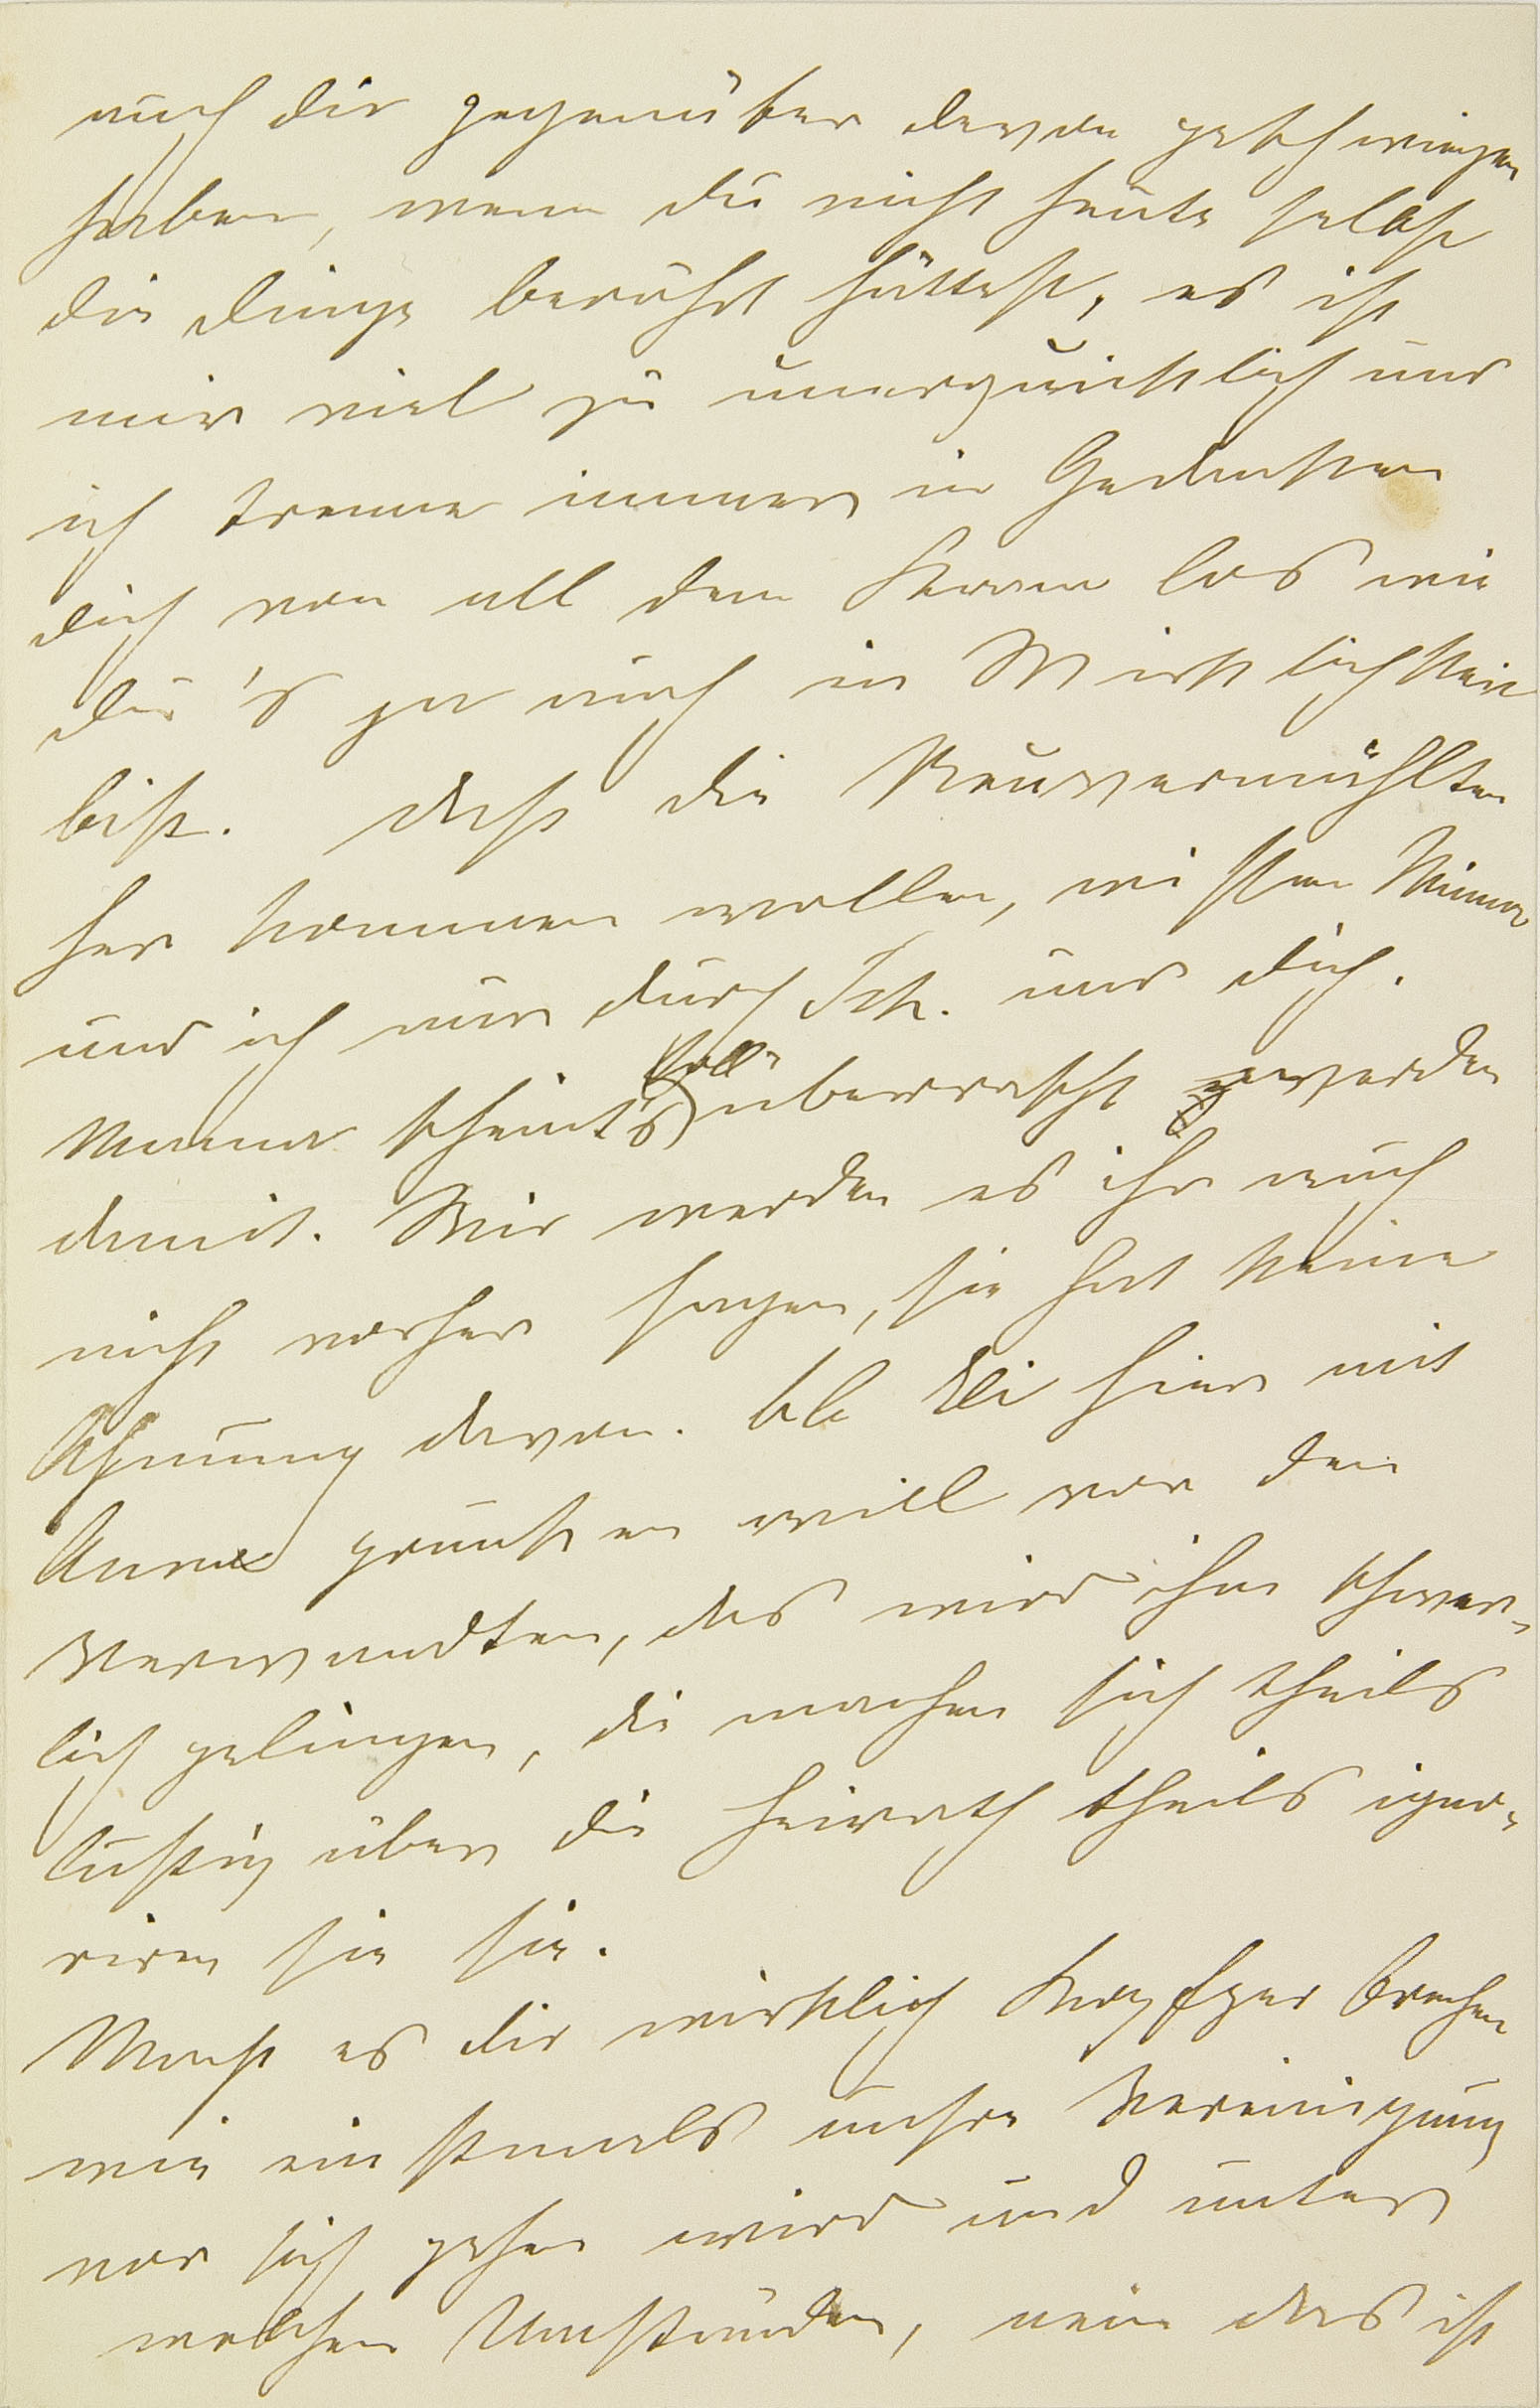 auch dir gegenüber davon geschwiegen
haben, wenn du nicht heute selbst
die Dinge berührt hättest, es ist
mir viel zu unerquicklich und
ich trenne immer in Gedanken
dich von all dem Kram los wie
du's ja auch in Wirklichkeit
bist. Daß die Neuvermählten
her kommen wollen, wissen Minna
und ich nur durch Sch. und dich.
Mama scheint's soll überrascht werden
damit. Wir werden es ihr auch
nicht vorher sagen, sie hat keine
Ahnung davon. Ob Eli hier mit
Anna prunken will vor den
Verwandten, das wird ihm schwer-
lich gelingen, die machen sich theils
lustig über die Heirath theils igno-
riren sie sie.
Macht es dir wirklich Kopfzerbrechen
wie einstmals unsre Vereinigung
vor sich gehen wird und unter
welchen Umständen, nein das ist